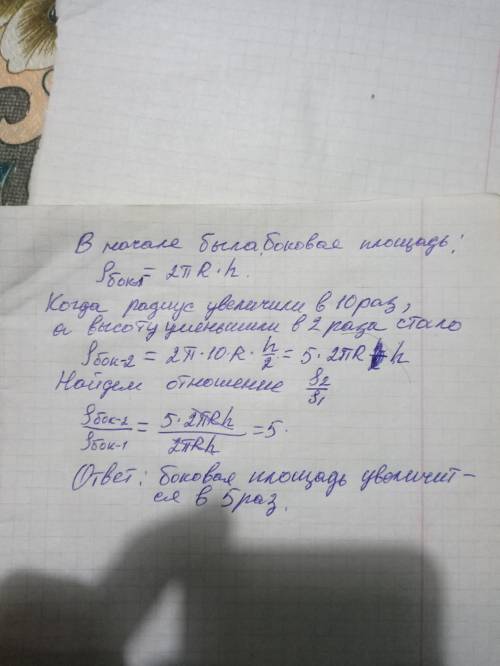 В начале была боковая площадь:
Sбок1 = 2πR·h.
Когда радиус увеличили в 10 раз,
а высоту уменьшили в 2 раза стало
Sбок-2 = 2π·10·R·h/2 = 5·2πR h
Найдем отношение S2/S1
Sбок-2/Sбок-1 = 5·2πRh/2πRh = 5.
Ответ: боковая площадь увеличит-
ся в 5 раз.